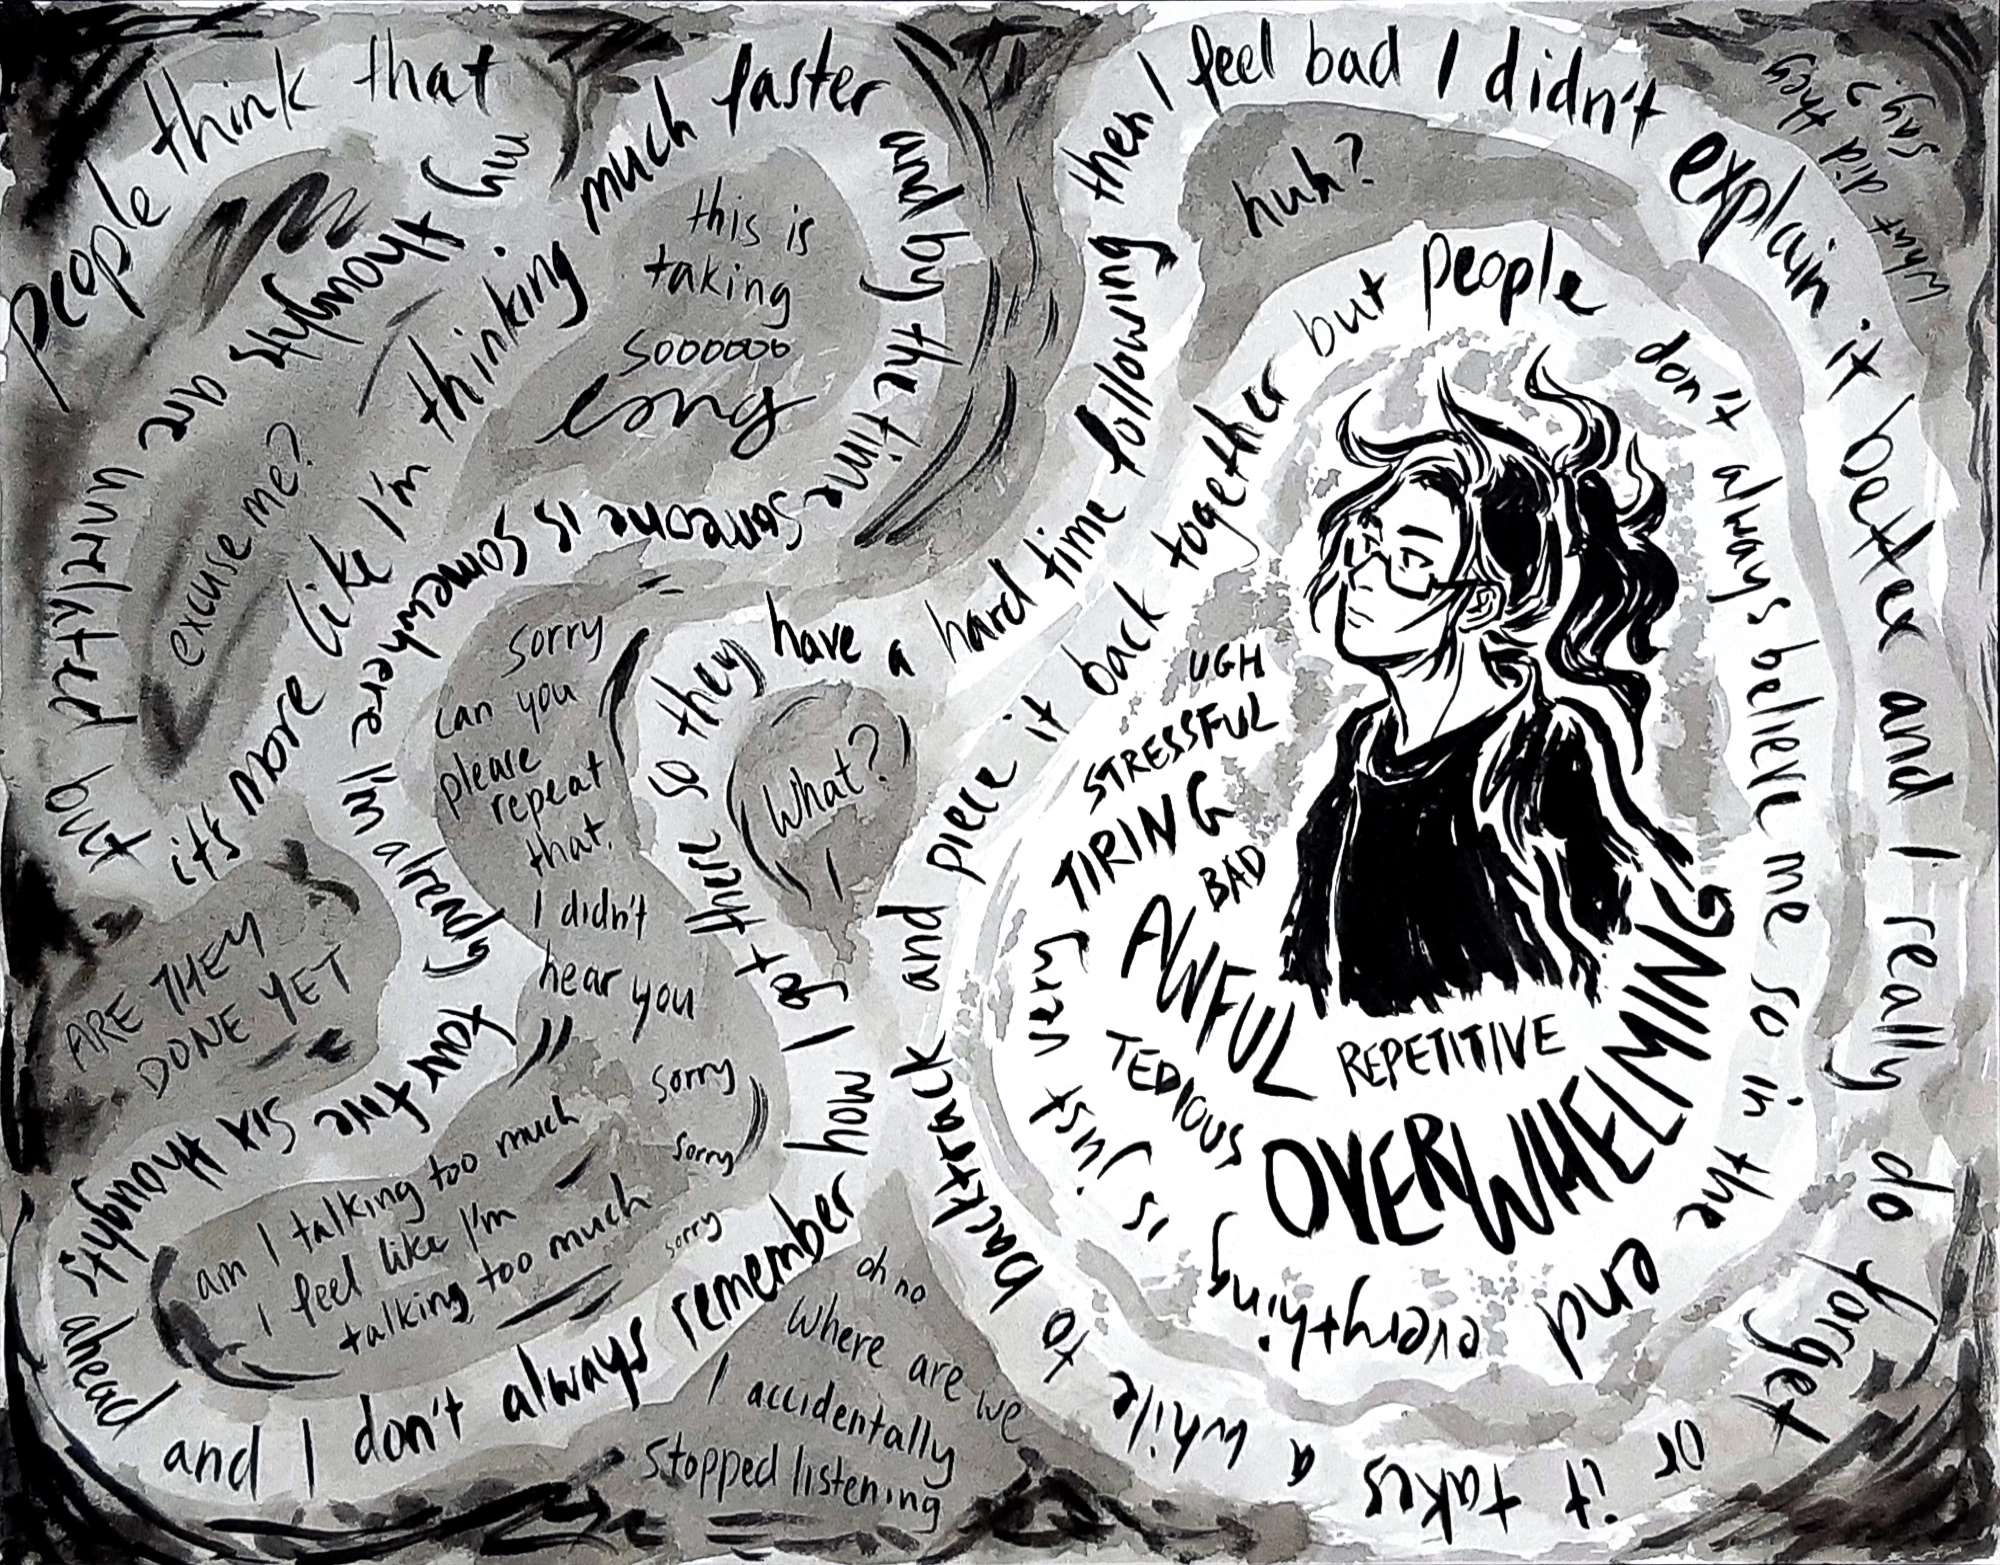 people think that
my thoughts are unrelated but
it's more like I'm thinking much faster
and by the time
someone is somewhere I'm already
four five six thoughts
ahead
and I don't always remember
how I got there so they have a hard time following
then I feel bad I didn't
explain it better and I really do forget
or it takes a while to
backtrack and piece it back together
but people don't always believe me so in the end
everything is just very
UGH
STRESSFUL
TIRING
BAD
AWFUL
TEDIOUS
REPETITIVE
OVERWHELMING
excuse me?
this is
taking
soooooo
long
ARE THEY
DONE YET
sorry
can you
please
repeat
that.
I didn't
hear you
sorry
sorry
sorry
am I talking too much
I feel like I'm
talking too much
What?
oh no
where are we
I accidentally
stopped listening
huh?
what did they
say?